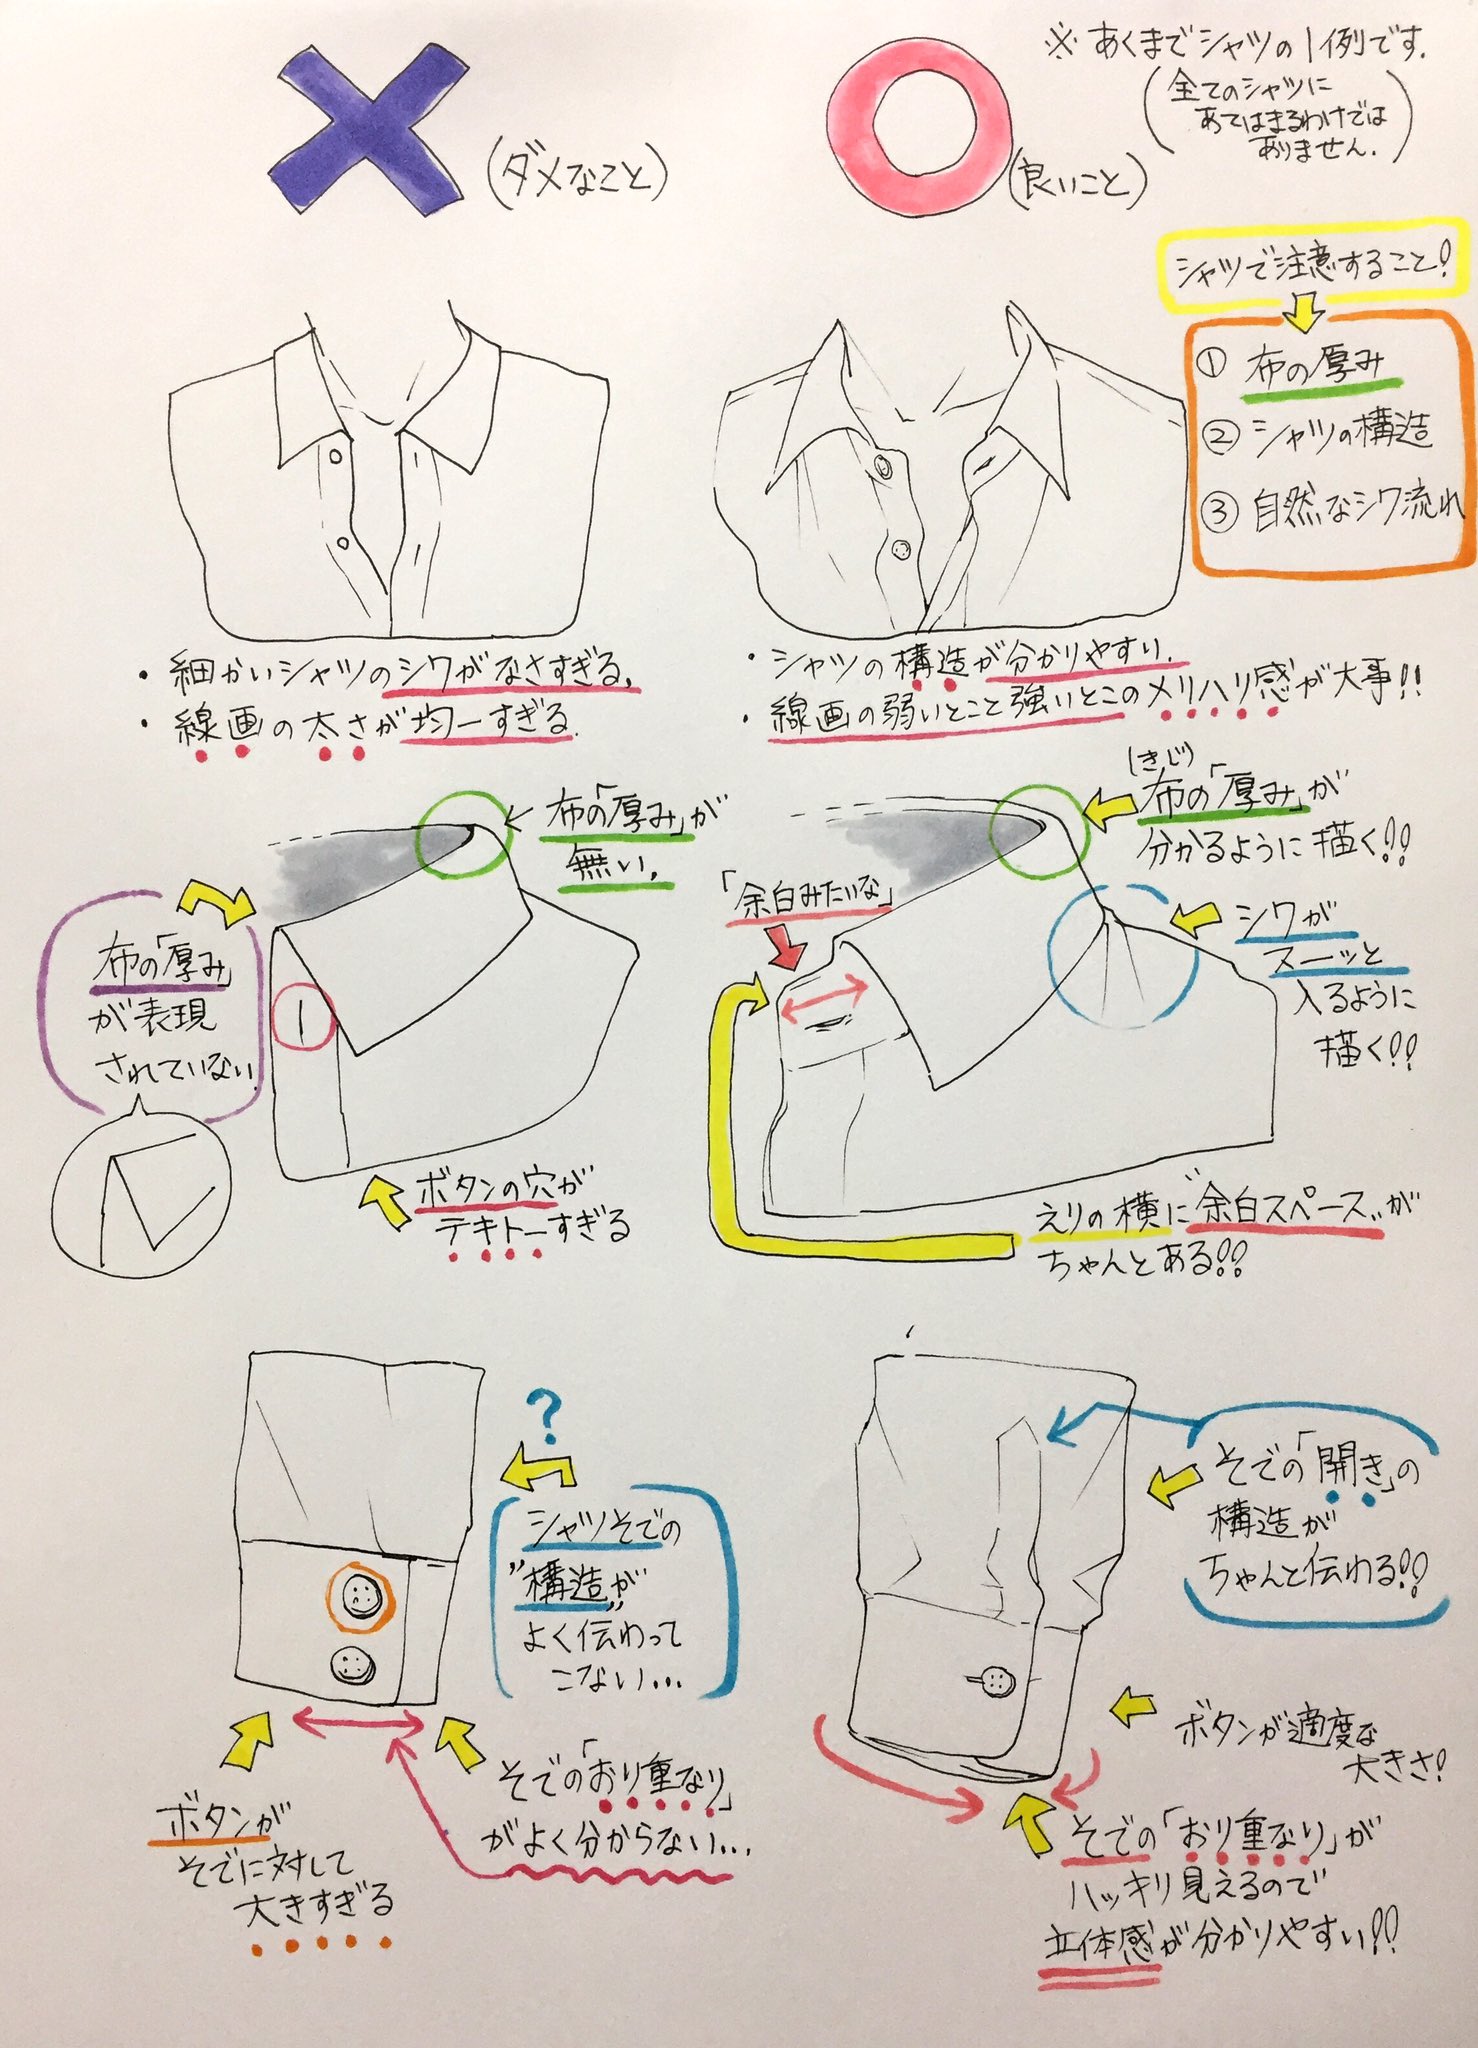 (ダメなこと)
(良いこと)
※あくまでシャツの1例です。
(全てのシャツに
あてはまるわけでは
ありません。)
シャツで注意すること!
① 布の厚み
② シャツの構造
③ 自然なシワ流れ
・細かいシャツのシワがなさすぎる。
・線画の太さが均一すぎる.
・シャツの構造が分かりやすい.
・線画の弱いとこと強いとこのメリハリ感が大事!!
布の「厚み」が
無い。
布の「厚み」
が表現
されていない.
ボタンの穴が
テキトーすぎる
(きじ)
布の「厚み」が
分かるように描く!!
「余白みたいな」
シワが
スーッと
入るように
描く!!
えりの横に"余白スペース"が
ちゃんとある!!
?
シャツそでの
"構造"が
よく伝わって
こない…
ボタンが
そでに対して
大きすぎる
そでの「おり重なり」
がよく分からない…
そでの「開き」の
構造が
ちゃんと伝わる!!
ボタンが適度な
大きさ!
そでの「おり重なり」が
ハッキリ見えるので
立体感が分かりやすい!!